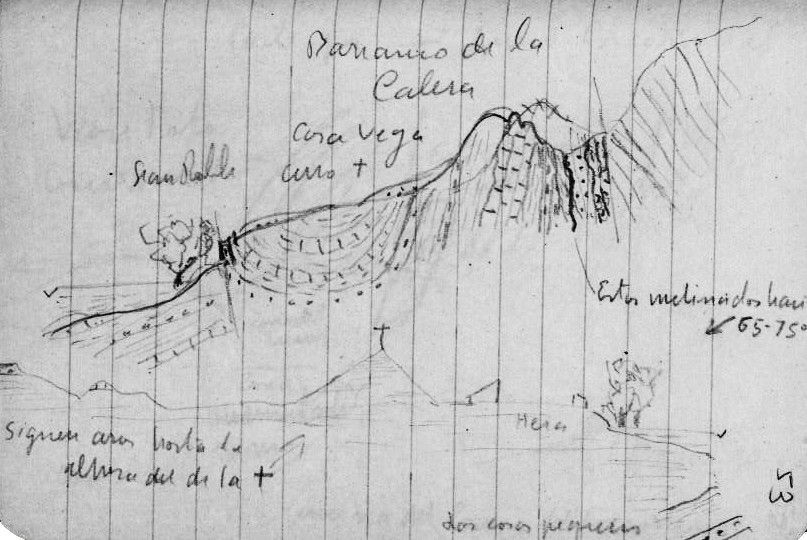 Barranco de la
Calera
Casa Vega
cerro +
Gran Roble
Estos inclinados hacia
65-75°
Hera
Siguen asos hasta la
altura del de la +
Dos cosas pequeñas
53